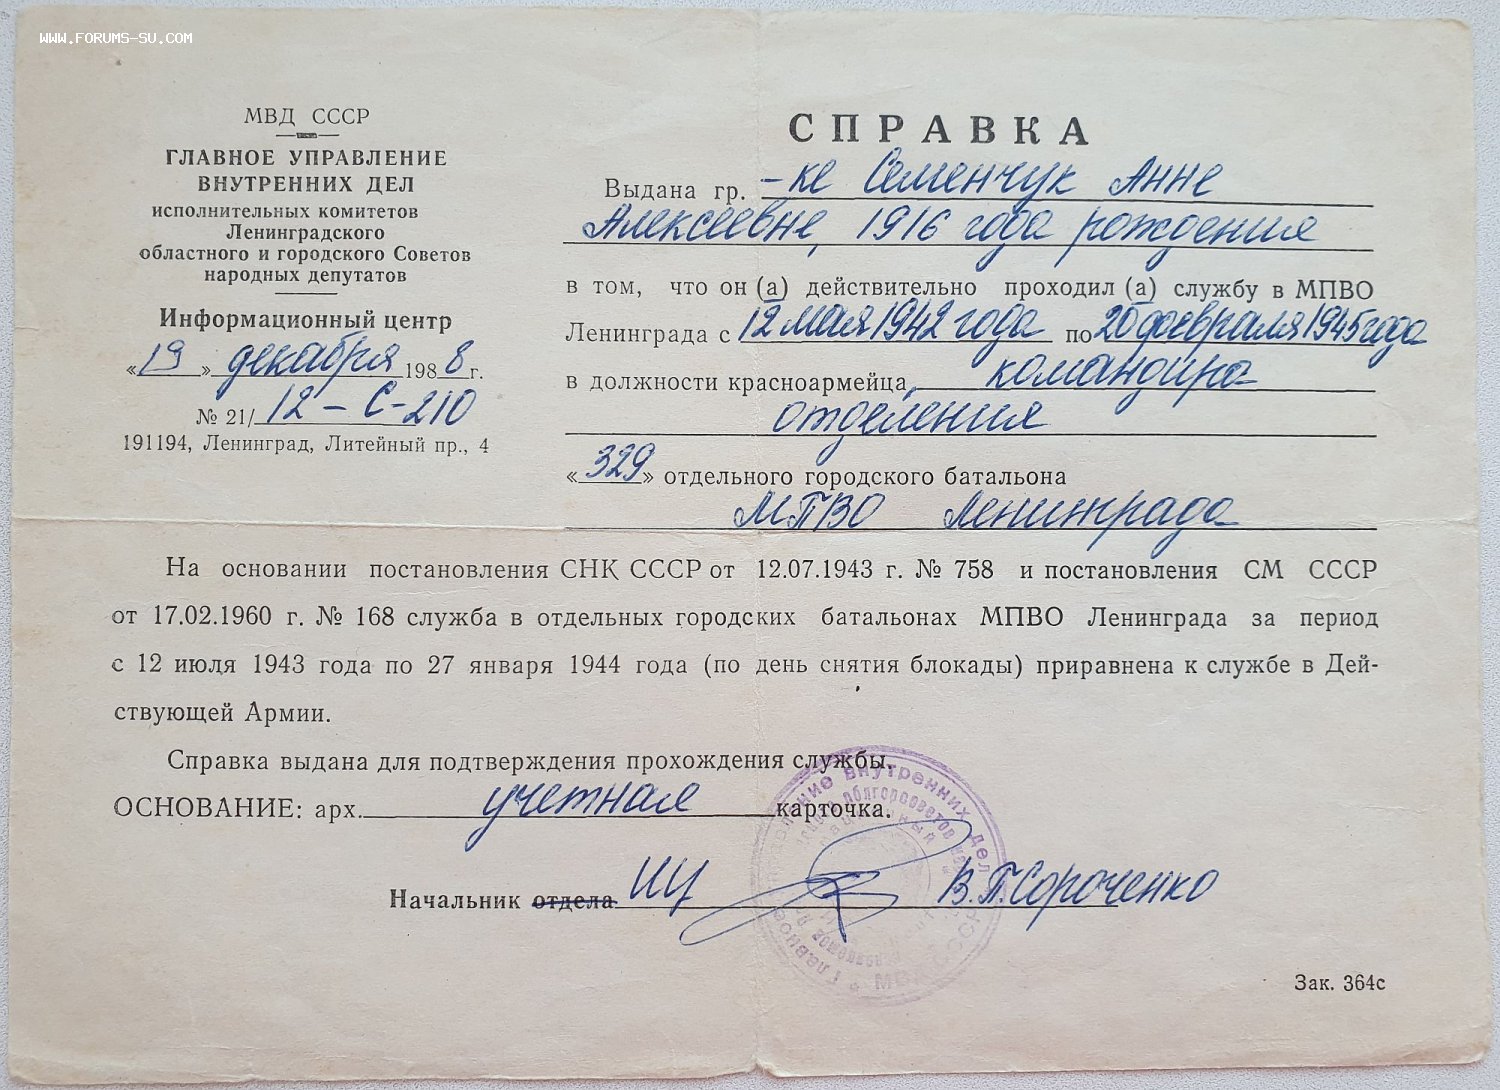 WWW.FORUMS-SU.COM
МВД СССР
ГЛАВНОЕ УПРАВЛЕНИЕ
ВНУТРЕННИХ ДЕЛ
исполнительных комитетов
Ленинградского
областного и городского Советов
народных депутатов
Информационный центр
«19» декабря 1988 г.
№ 21/ 12-С-210
191194, Ленинград, Литейный пр., 4
СПРАВКА
Выдана гр. -ке Семенчук Анне
Алексеевне, 1916 года рождения
в том, что он (а) действительно проходил (а) службу в МПВО
Ленинграда с 12 мая 1942 года по 20 февраля 1945 года
в должности красноармейца, командира
отделения
«329» отдельного городского батальона
МПВО Ленинграда
На основании постановления СНК СССР от 12.07.1943 г. № 758 и постановления СМ СССР
от 17.02.1960 г. № 168 служба в отдельных городских батальонах МПВО Ленинграда за период
с 12 июля 1943 года по 27 января 1944 года (по день снятия блокады) приравнена к службе в Дей-
ствующей Армии.
Справка выдана для подтверждения прохождения службы.
ОСНОВАНИЕ: арх. учетная карточка.
Начальник отдела ИЦ В.П. Сороченко
Главное управление внутренних дел
МВД СССР
Зак. 364с